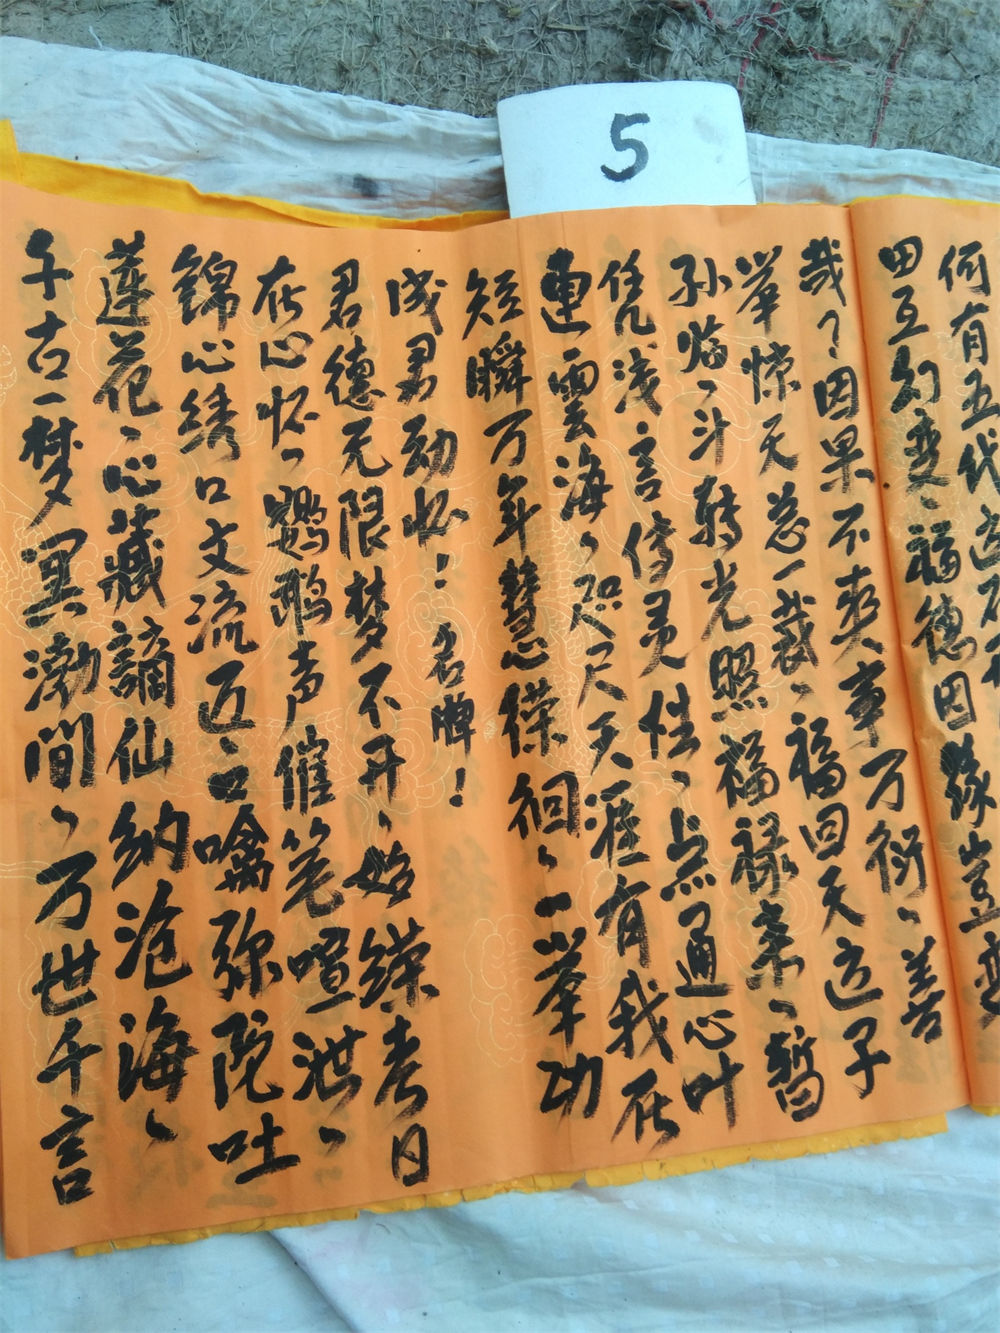 5
何有五代
田互幻变、福德因缘岂变
哉了因果不爽事万衍、善
举惊天慈一裁、福回天边子
孙临、斗转光照福禄来、暂
凭浅言传灵性、点通心叶
连雲海、咫尺天涯有我在
短瞬万年慧缘徊、一举功
成君劲怀!名牌!
君德无限梦不开、始缘考日
在心怀、鹦鹉声催笔喧泄、
锦心绣口文流迈、口噙弥陀吐
莲花、心藏谪仙纳沧海、
千古一梦冥渤间、万世千言